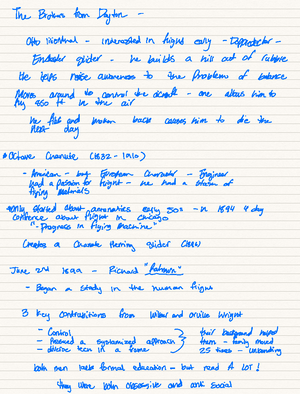 The Brothers from Dayton -
Otto Lilienthal - interested in flight early - 
glider - he builds a hill out of rubble
He helps raise awareness to the problems of balance
Moves around to control the aircraft - one allows him to
fly 850 ft in the air
He falls and broken back causes him to die the
next day
Octave Chanute (1832-1910)
- American - Engineer
had a passion for flight - he had a
flying materials
started about aeronautics early 50s - in 1894 4 day
conference about flight in Chicago
"Progress in Flying Machine"
Creates a Chanute Herring glider
June 2nd 1899 - Richard
- Began a study in the human flight
3 key contributions from Wilbur and Orville Wright
- Control
- Pressured a systemized approach
- in a frame
their background helped
them - family moved
25 times -
both men lacks formal education - but read A LOT!
they were both obsessive and anti social